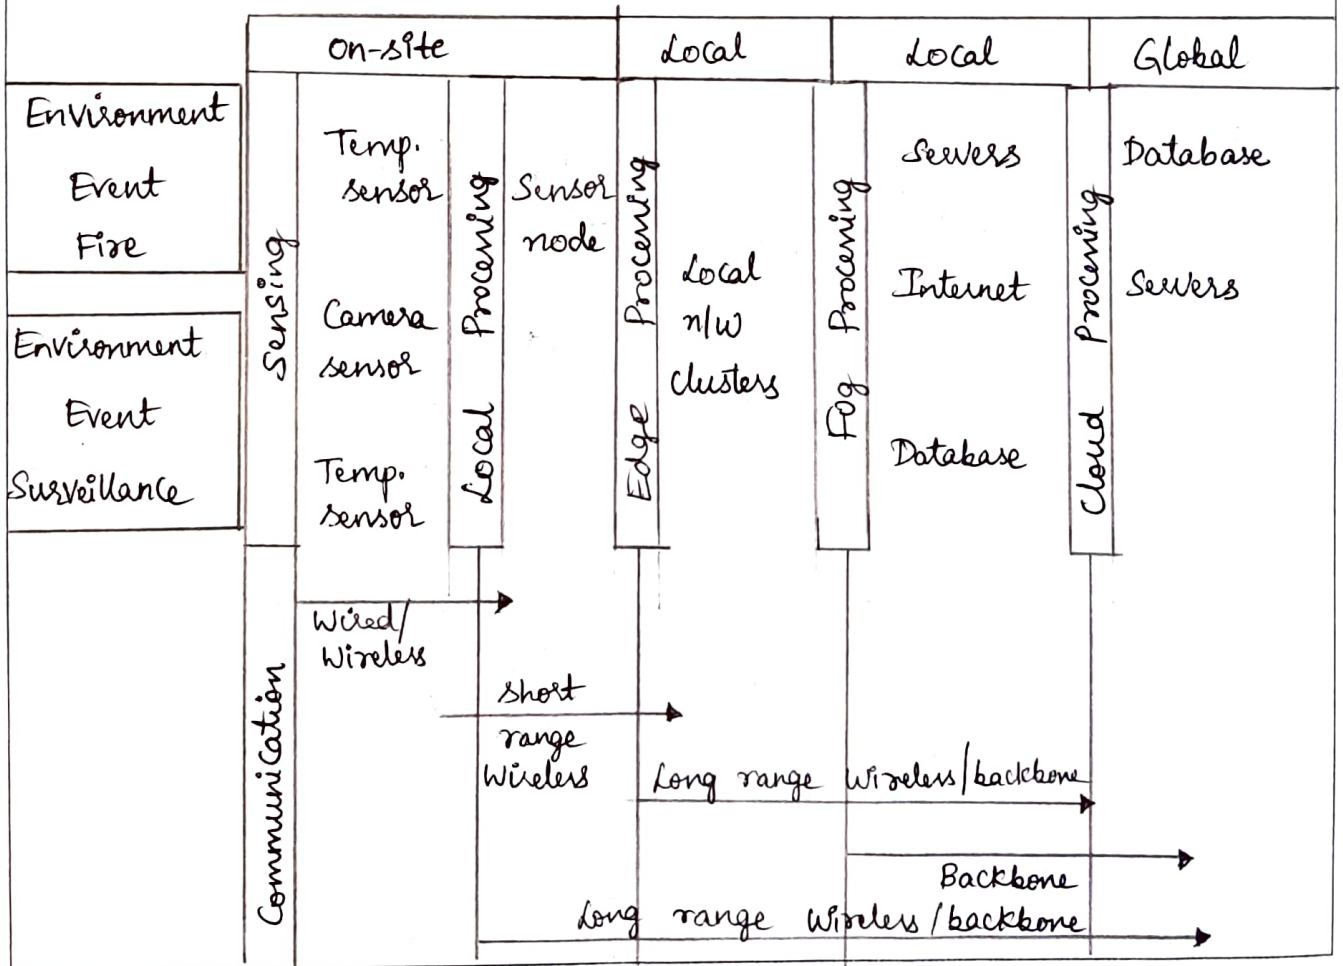 On-site
Local
Local
Global
Environment
Event
Fire
Environment
Event
Surveillance
Sensing
Temp.
sensor
Camera
sensor
Temp.
sensor
Local Processing
Sensor
node
Edge Processing
Local
n/w
clusters
Fog Processing
Servers
Internet
Database
Cloud Processing
Database
Servers
Communication
Wired/
Wireless
Short
range
Wireless
Long range Wireless/backbone
Backbone
Long range Wireless/backbone